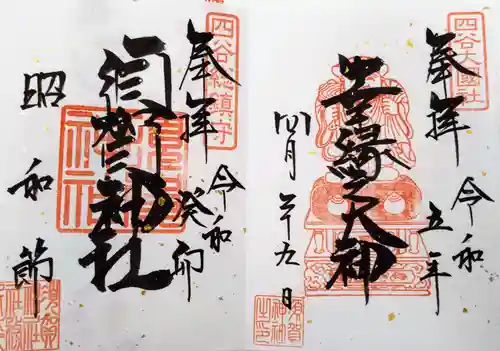 四谷大國社
奉拝
令和
五年
縁大神
四月廿九日
須賀神社之印
四谷總鎮守
奉拝
令和
癸卯
須賀神社
昭和節